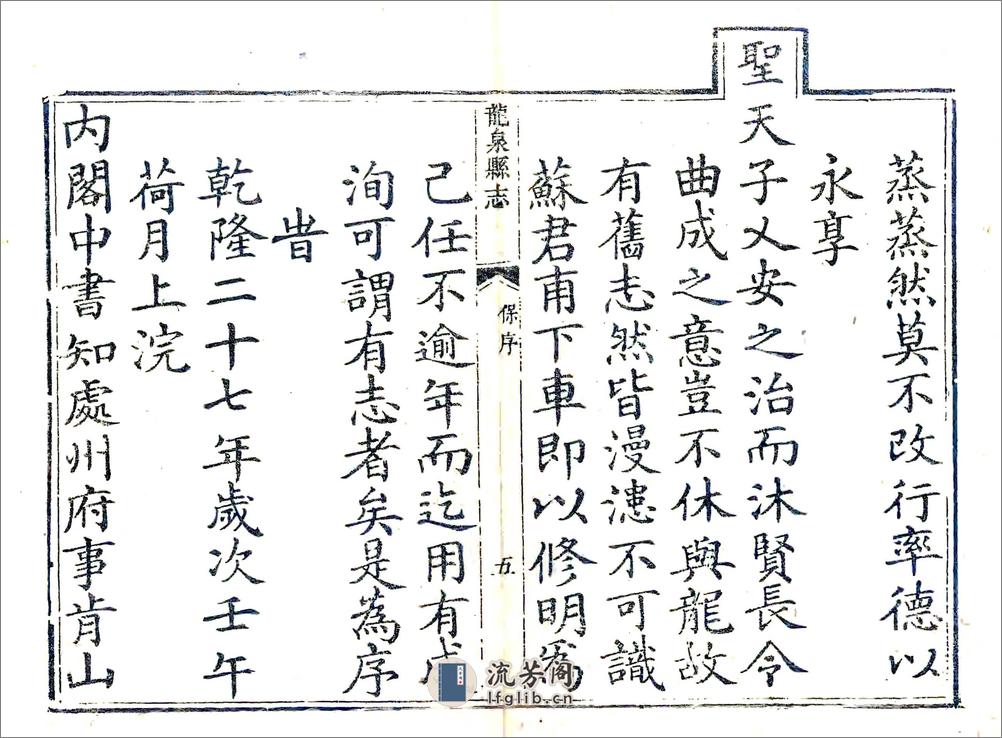 蒸蒸然莫不改行率德以
永享
聖天子乂安之治而沐賢長令
曲成之意豈不休與龍故
有舊志然皆漫漶不可識
蘇君甫下車即以修明為
龍泉縣志
保序
五
己任不逾年而迄用有成
洵可謂有志者矣是為序
旹
乾隆二十七年歲次壬午
荷月上浣
内閣中書知處州府事肯山
流芳阁
lfglib.cn